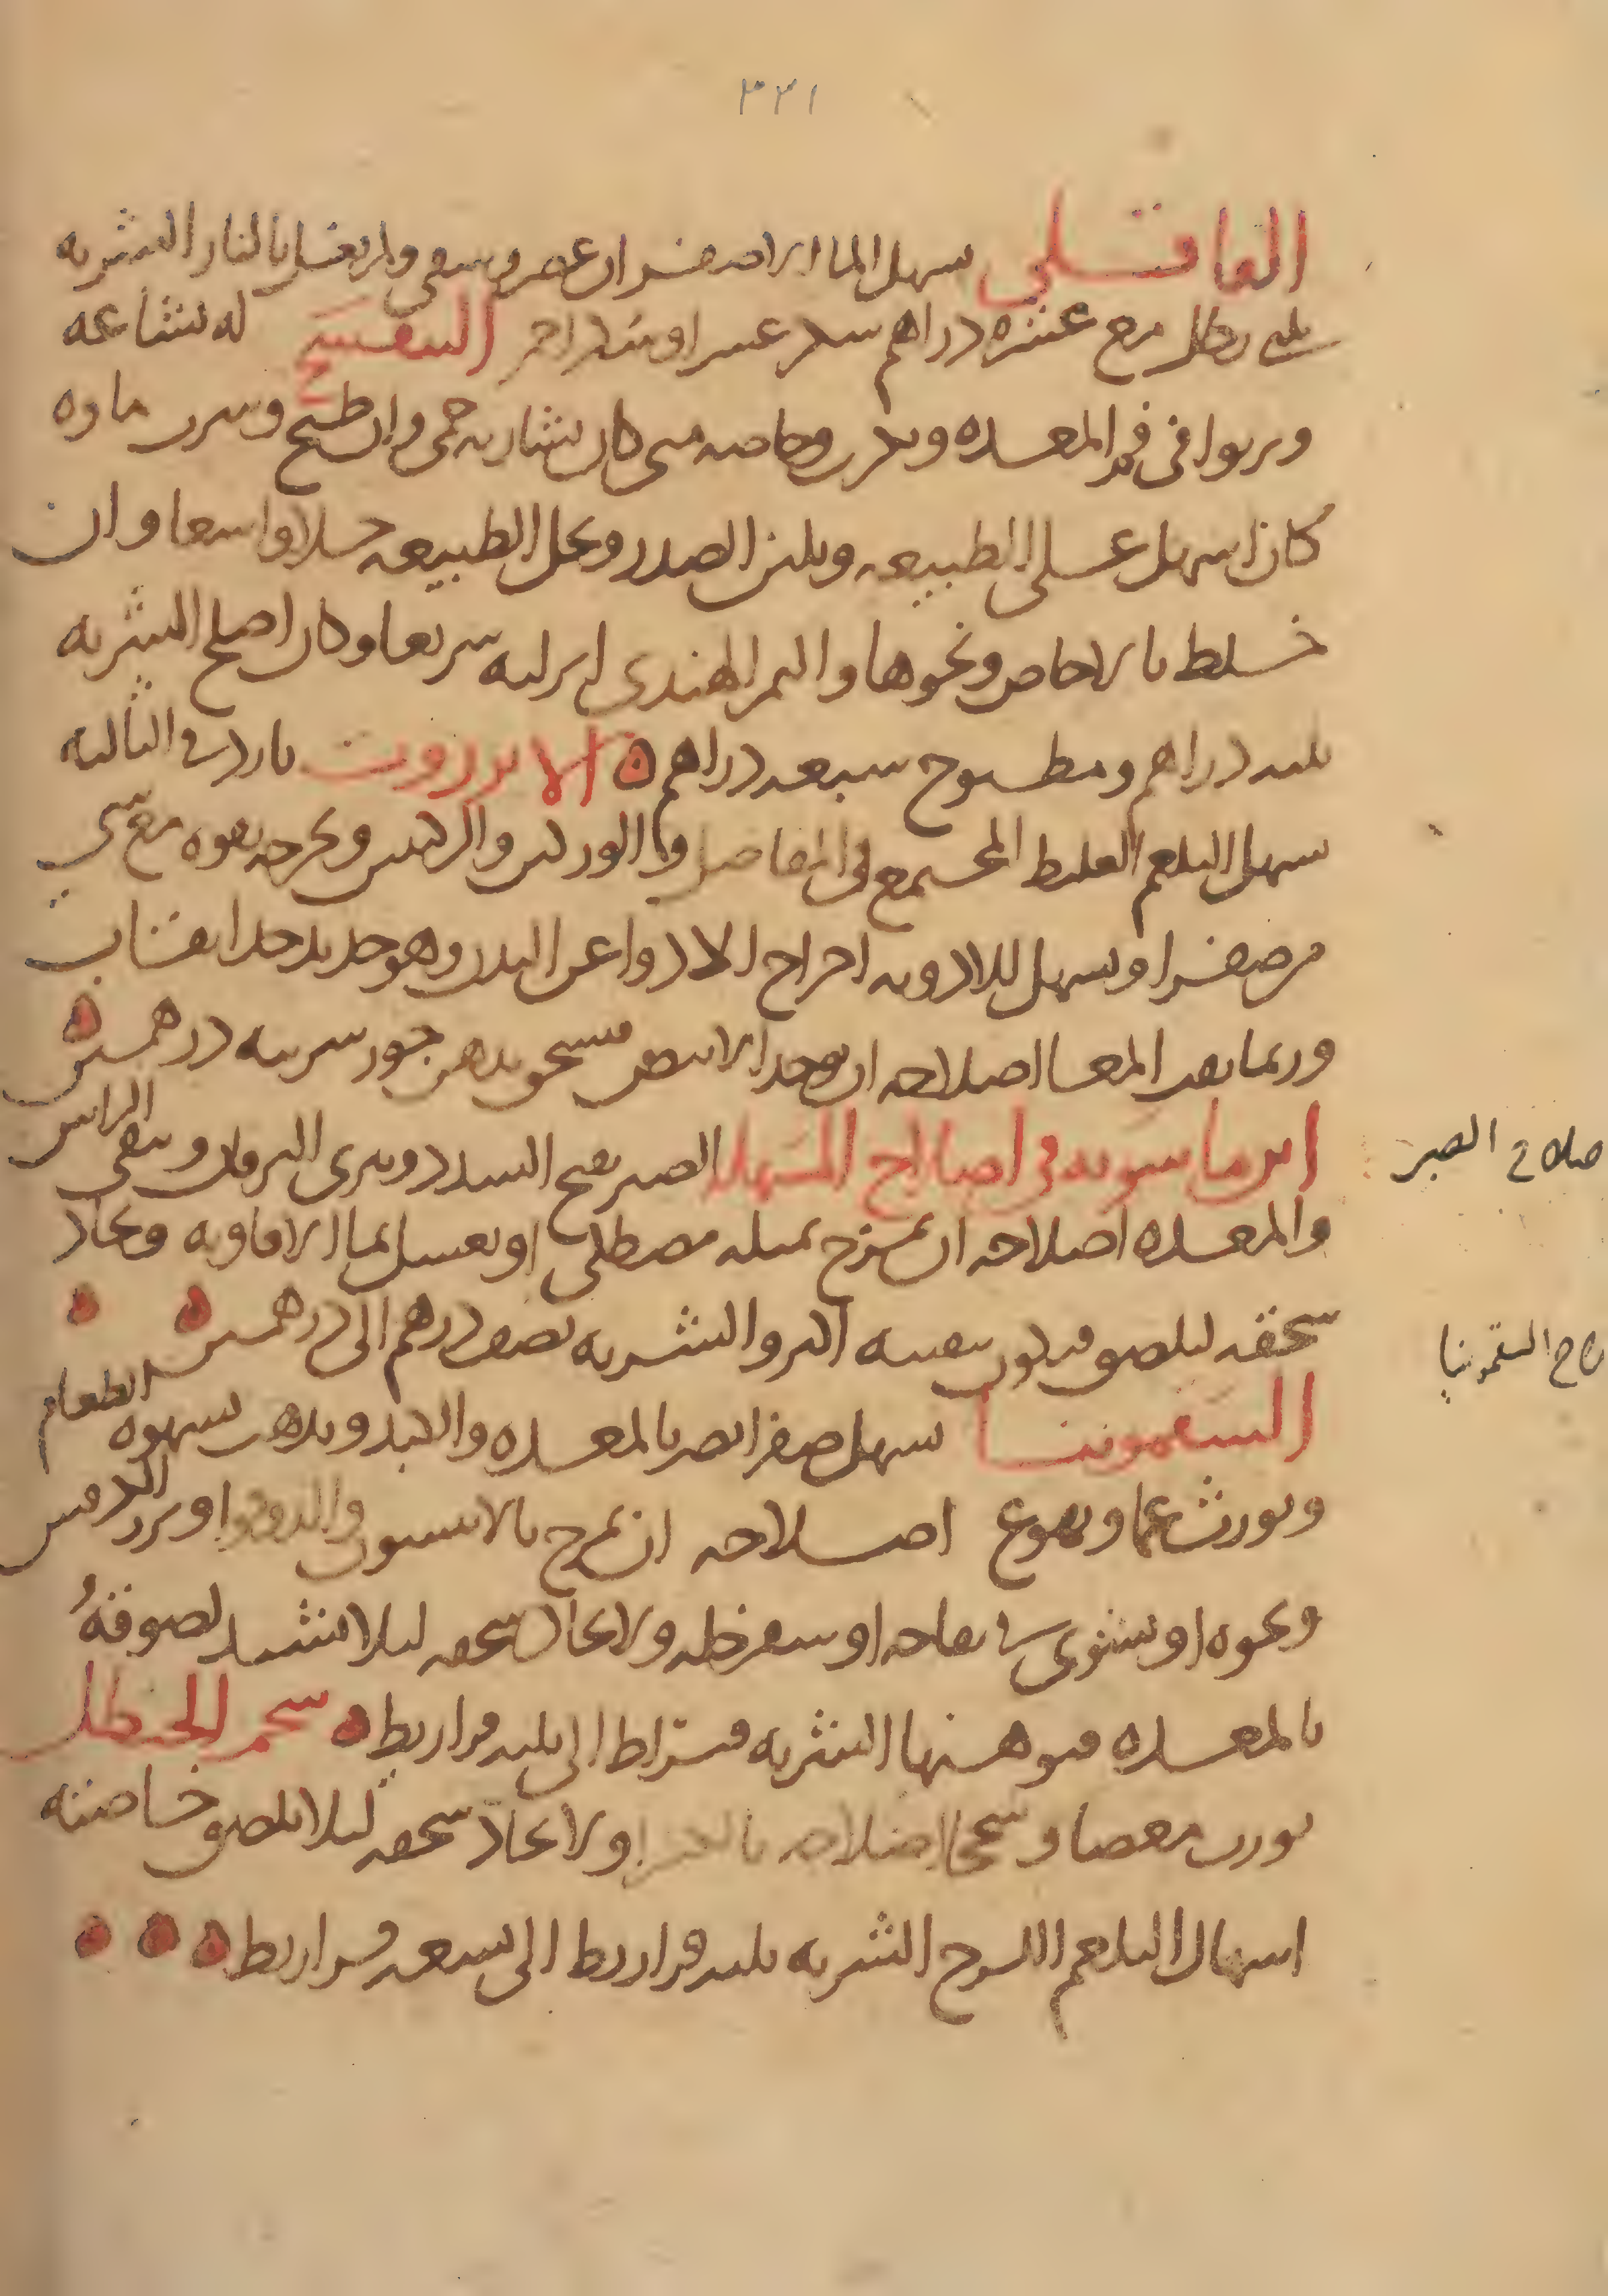 ٣٢١
القاقلى يسهل الماء الاصفر ان عصر وسقى ولم يغسل بالنار الشربه
ثلثى رطل مع عشره دراهم سكر عشر او سكر احمر البنفسج له بشاعه
ويربوا فى فم المعده ويكرب وخاصه متى كان بشاربه حمى وان طبخ وشرب ماوه
كان اسهل على الطبيعه ويلين الصدر ويحل الطبيعه حلا واسعا وان
خلط بالاجاص ونحوها والتمر الهندى انزله سريعا وكان اصلح الشربه
ثلثه دراهم ومطبوخ سبعه دراهم الانزروت بارد فى الثالثه
يسهل البلغم الغليظ المجتمع فى المفاصل والوركين والركبتين ويخرجه بقوه مع شى
من صفرا ويسهل للادويه اخراج الادوا عن البدن وهو حديد جدا
وربما المعا اصلاحه ان يوخذ الابيض فيسحق بدهن جوز شربته درهمين
ابن ماسويه فى اصلاح المسهله الصبر يفتح السدد ويبرى اليرقان وينقى الراس
والمعده اصلاحه ان يمزج بمثله مصطكى او يغسل بما الافاويه ويجاد
سحقه ليلصق فيكون تنقيته اكثر والشربه نصف درهم الى درهمين
السقمونيا يسهل صفرا يضر بالمعده والكبد ويذهب بشهوه الطعام
ويورث غما وتهوع اصلاحه ان يمزج بالانيسون والدوقوا او بزر الكرفس
ونحوه او يشوى فى تفاحه او سفرجله ولا يجاد سحقه ليلا تشتد لصوقه
بالمعده فيوهنها الشربه قيراط الى ثلثه قراريط شحم الحنظل
يورث مغصا وسحجا اصلاحه بالكثيرا ولا يجاد سحقه ليلا يلصق خاصته
اسهال البلغم اللزج الشربه ثلثه قراريط الى سبعه قراريط
صلاح الصبر
لاح السقمونيا